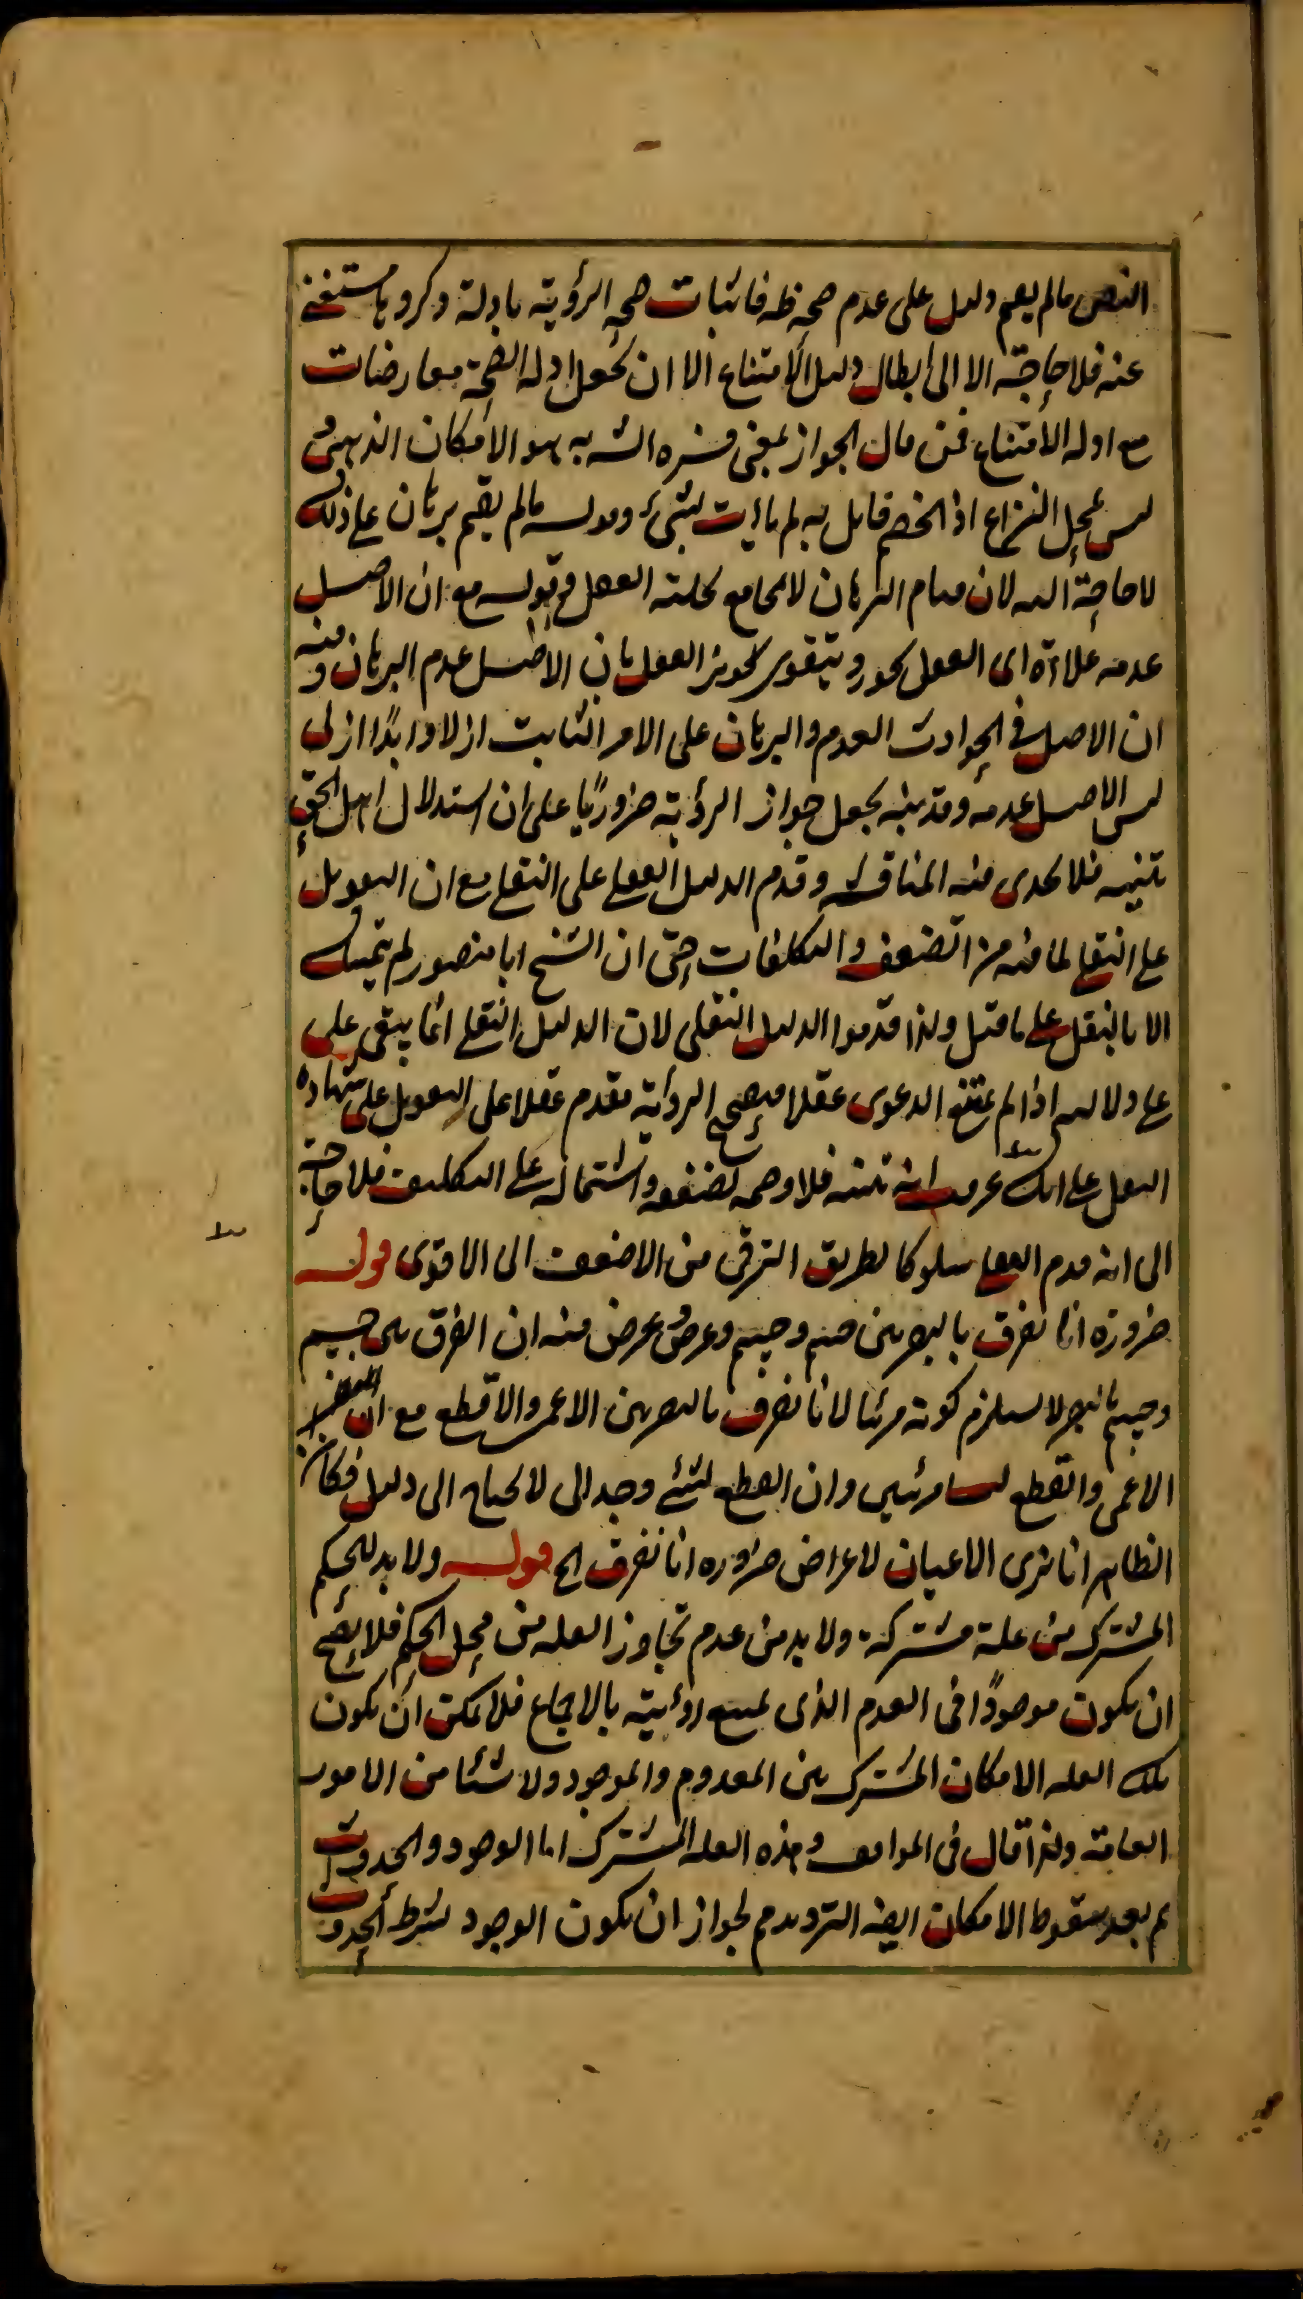 النص ما لم يقم دليل على عدم صحة ظه فاثبات صحة الرؤية بادلة ذكروها مستغنى
عنه فلا حاجة الا الى ابطال دليل الامتناع الا ان تجعل ادلة الصحة معارضات
مع ادلة الامتناع فمن قال الجواز بمعنى فسره الش به هو الامكان الذهنى و
ليس بمحل النزاع اذ الخصم قائل به لم يأت بشئ وقوله ما لم يقم برهان على ذلك
لا حاجة اليه لان قيام البرهان لا يجامع تخلية العقل وقوله مع ان الاصل
عدمه علاوة اى العقل يجوز ويتقوى تجويز العقل بان الاصل عدم البرهان وفيه
ان الاصل فى الحوادث العدم والبرهان على الامر الثابت ازلا وابدا ازلى
ليس الاصل عدمه وقد ينبه بجعل جواز الرؤية ضروريا على ان استدلال اهل الحق
تنبيه فلا يجدى فيه المناقشة وقدم الدليل العقلى على النقلى مع ان التعويل
على النقلى لما فيه من الضعف والتكلفات حتى ان الشيخ ابا منصور لم يتمسك
الا بالنقل على ما قيل ولذا قدموا الدليل النقلى لان الدليل النقلى انما يبقى على
على دلالته اذا لم يمتنع الدعوى عقلا فيصح الرواية مقدم عقلا على التعويل على شهادة
النقل على انك عرفت انه تنبيه فلا وجه لضعفه واشتماله على التكليف فلا حاجة
الى انه قدم العقلى سلوكا لطريق الترقى من الاضعف الى الاقوى قوله
ضرورة انا نفرق بالبصر بين جسم وجسم وعرض وعرض فيه ان الفرق بين جسم
وجسم بالبصر لا يستلزم كونه مرئيا لانا نفرق بالبصر بين الاعمى والاقطع مع ان
الاعمى والقطع ليسا مرئيين وان القطع لشئ وجدانى لا يحتاج الى دليل فكان
الظاهر انا نرى الاعيان لاعراض ضرورة انا نفرق الخ قوله ولا بد للحكم
المشترك من علة مشتركة ولا بد من عدم تجاوز العلة من محل الحكم فلا يصح
ان يكون موجودا فى العدم الذى يمتنع رؤيته بالاجماع فلا يمكن ان يكون
تلك العلة الامكان المشترك بين المعدوم والموجود ولا شيئا من الامور
العامة ولذا قال فى المواقف وهذه العلة المشتركة اما الوجود والحدوث
ثم بعد سقوط الامكان ايضا الترديد مم لجواز ان يكون الوجود بشرط الحدوث